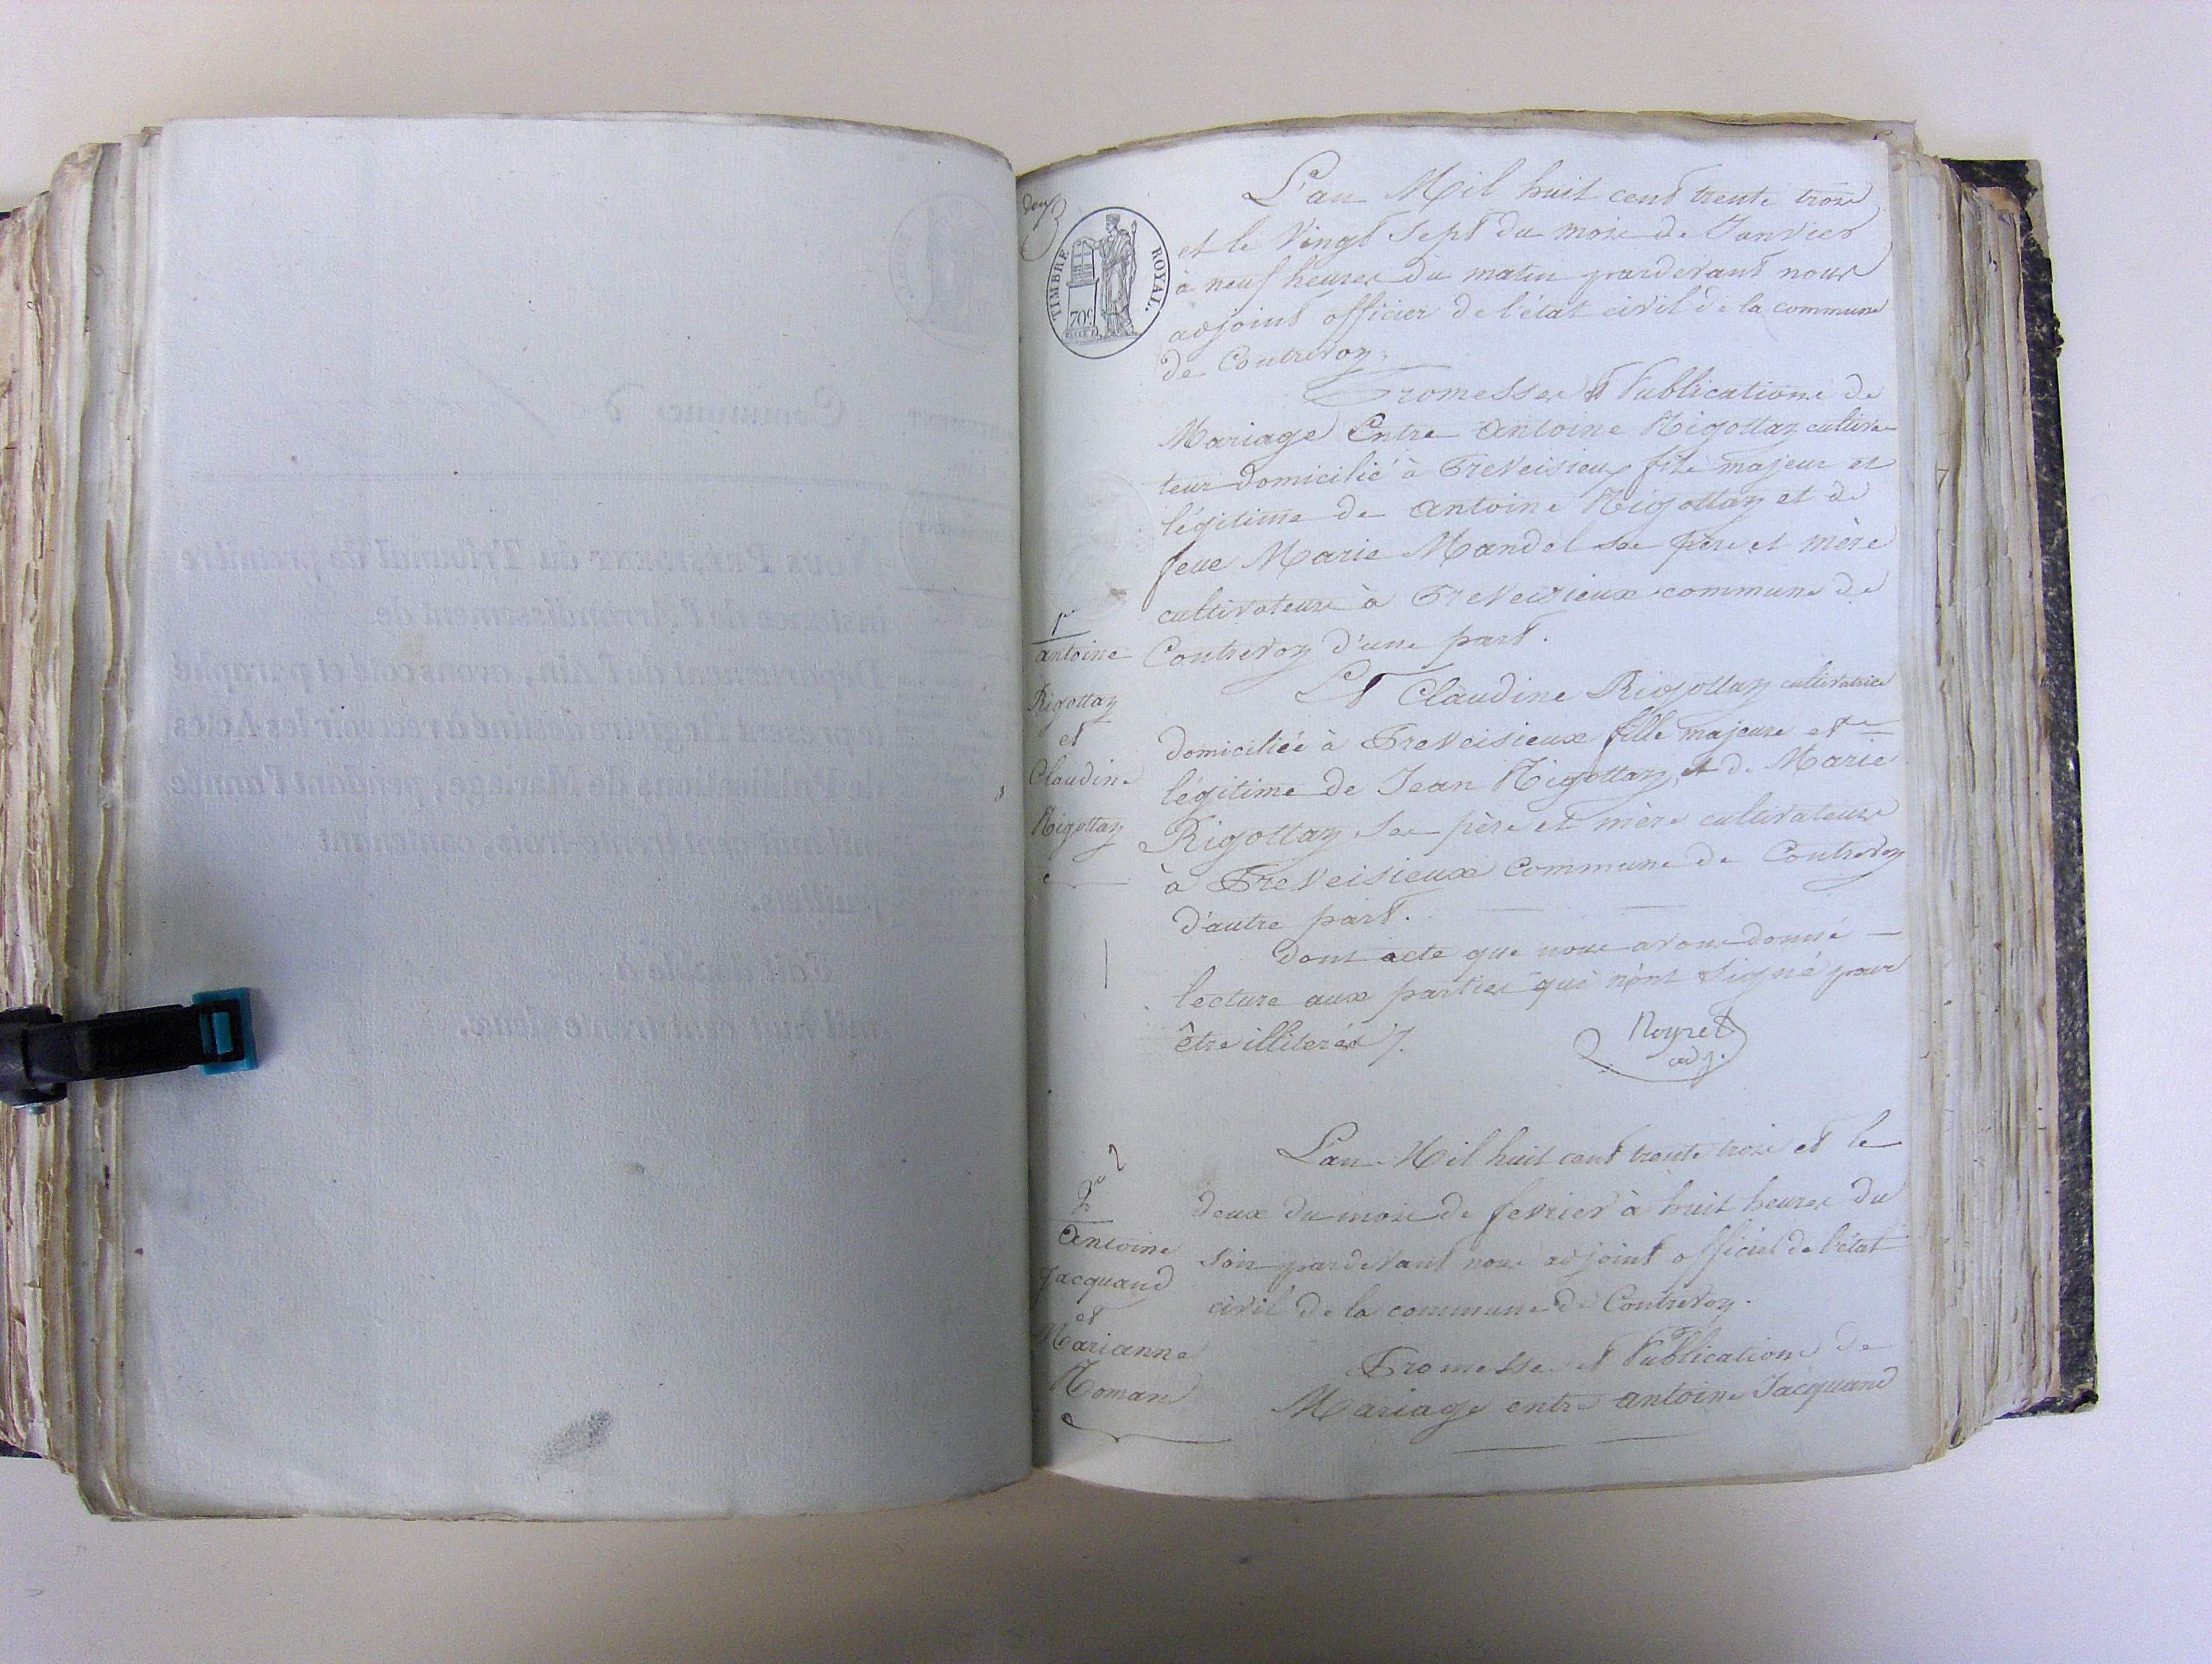 deux
TIMBRE ROYAL.
70c
L'an Mil huit cent trente trois
et le Vingt Sept du mois de Janvier
à neuf heures du matin pardevant nous
adjoint officier de l'état civil de la commune
de Contrevoz.
Promesses et Publications de
Mariage Entre antoine Rigottaz cultiva-
teur domicilié à Preveisieux fils majeur et
légitime de antoine Rigottaz et de
feue Marie Mandel ses père et mère
cultivateurs à Preveisieux commune de
Contrevoz d'une part.
Et Claudine Rigottaz cultivatrice
domiciliée à Preveisieux fille majeure et
légitime de Jean Rigottaz, et de Marie
Rigottaz ses père et mère cultivateurs
à Preveisieux Commune de Contrevoz
d'autre part.
dont acte que nous avons donné
lecture aux parties qui n'ont signé pour
être illiterés.
Noyret
adj.
1er
antoine
Rigottaz
et
Claudine
Rigottaz
L'an Mil huit cent trente trois et le
deux du mois de fevrier à huit heures du
soir pardevant nous adjoint officier de l'état
civil de la commune de Contrevoz.
Promesses et Publications de
Mariage entre antoine Jacquand
2
antoine
Jacquand
et
Marianne
Roman